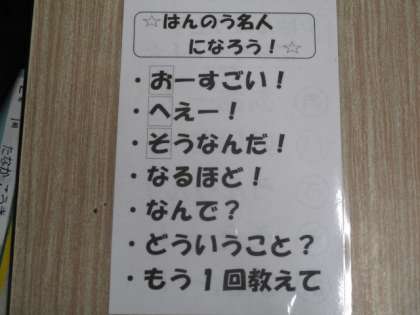 ☆はんのう名人
になろう！☆
・おーすごい！
・へえー！
・そうなんだ！
・なるほど！
・なんで？
・どういうこと？
・もう１回教えて